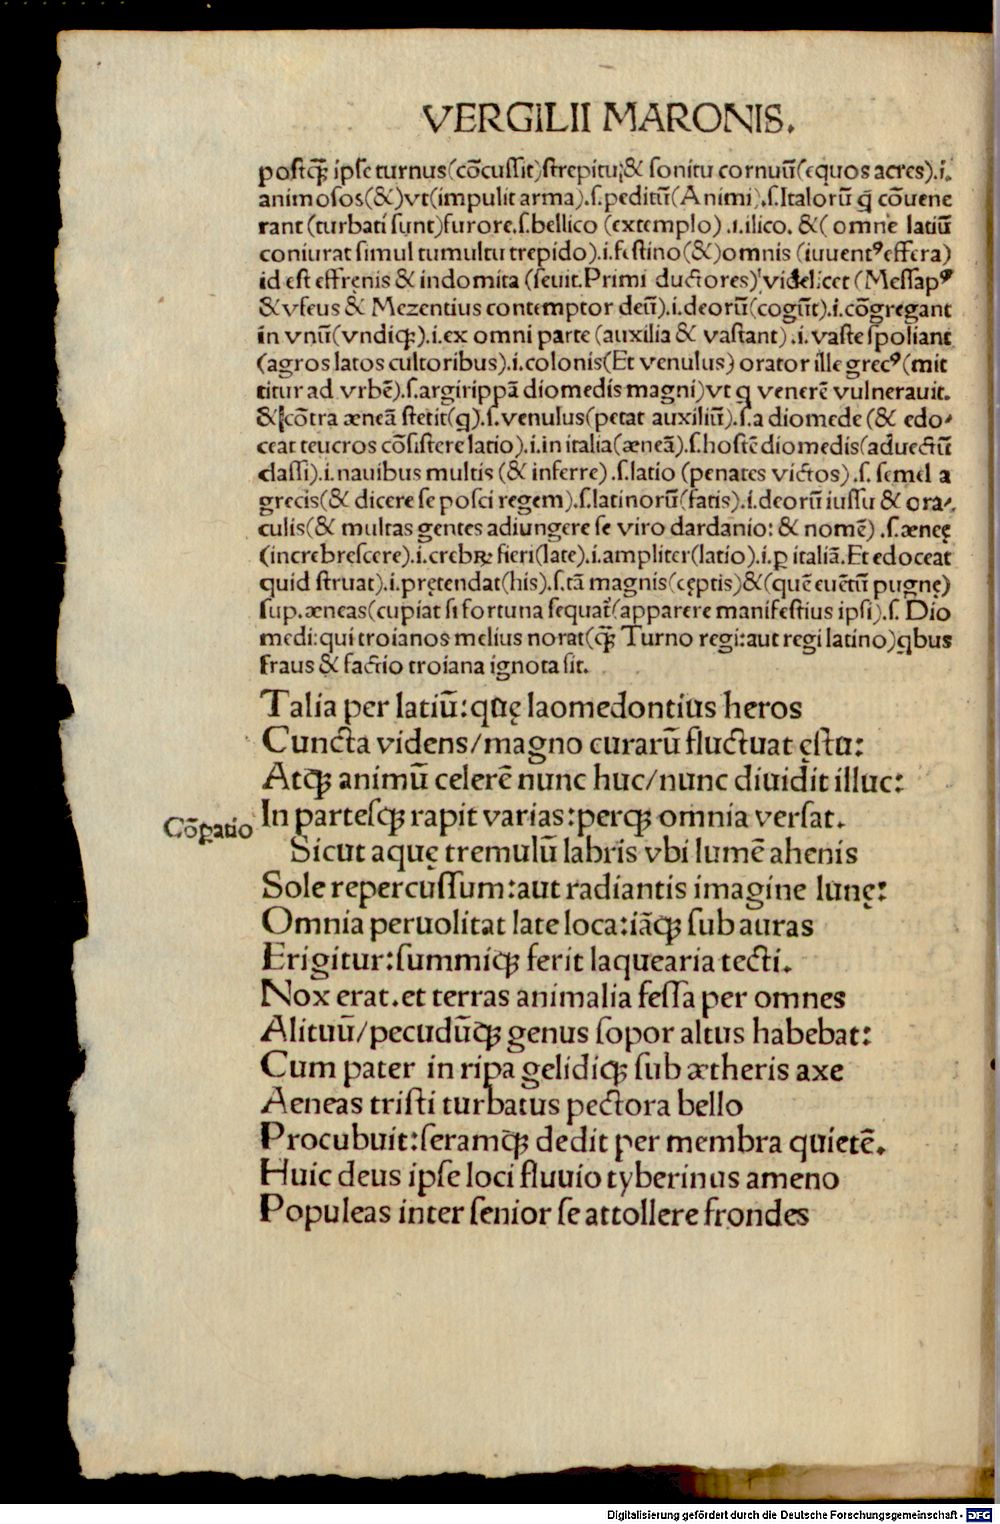 VERGILII MARONIS.
postq̃ꝫ ipse turnus(cōcussit)strepitu;& sonitu cornuū(equos acres).i.
animosos(&)vt(impulit arma).s.peditū(Animi).s.Italorū q̄ cōuene
rant (turbati sunt)furore.s.bellico (extemplo) .i.ilico. &( omne latiū
coniurat simul tumultu trepido).i.festino(&)omnis (iuuentꝰeffera)
id est effrenis & indomita (seuit.Primi ductores) videlicet (Messapꝰ
& vfeus & Mezentius contemptor deū).i.deorū(cogūt).i.cōgregant
in vnū(vndiqꝫ).i.ex omni parte (auxilia & vastant) .i. vaste spoliant
(agros latos cultoribus).i.colonis(Et venulus) orator ille grecꝰ (mit
titur ad vrbē).s.argirippā diomedis magni)vt q venerē vulnerauit.
& cōtra æneā stetit(q).s.venulus(petat auxiliū).s.a diomede (& edo-
ceat teucros cōsistere latio).i.in italia(æneā).s.hostē diomedis(aduectū
classi).i.nauibus multis (& inferre) .s.latio (penates victos) .s. semel a
grecis(& dicere se posci regem).s.latinorū(fatis).i.deorū iussu & ora-
culis(& multas gentes adiungere se viro dardanio: & nomē) .s.æneę
(increbrescere).i.crebrꝝ fieri(late).i.ampliter(latio).i.ꝑ italiā.Et edoceat
quid struat).i.prętendat(his).s.tā magnis(cęptis)&(quē euētū pugnę)
sup.æneas(cupiat si fortuna sequat(apparere manifestius ipsi).s. Dio
medi:qui troianos melius norat(q̃ꝫ Turno regi:aut regi latino)qbus
fraus & factio troiana ignota sit.
Talia per latiū:quę laomedontius heros
Cuncta videns/magno curarū fluctuat ęstu:
Atq̃ꝫ animū celerē nunc huc/nunc diuidit illuc:
In partesqꝫ rapit varias:perqꝫ omnia versat.
Cōꝑatio
Sicut aquę tremulū labris vbi lumē ahenis
Sole repercussum:aut radiantis imagine lunę:
Omnia peruolitat late loca:iāqꝫ sub auras
Erigitur:summiqꝫ ferit laquearia tecti.
Nox erat.et terras animalia fessa per omnes
Alituū/pecudūqꝫ genus sopor altus habebat:
Cum pater in ripa gelidiqꝫ sub ætheris axe
Aeneas tristi turbatus pectora bello
Procubuit:seramq̃ꝫ dedit per membra quietē.
Huic deus ipse loci fluuio tyberinus ameno
Populeas inter senior se attollere frondes
Digitalisierung gefördert durch die Deutsche Forschungsgemeinschaft - DFG